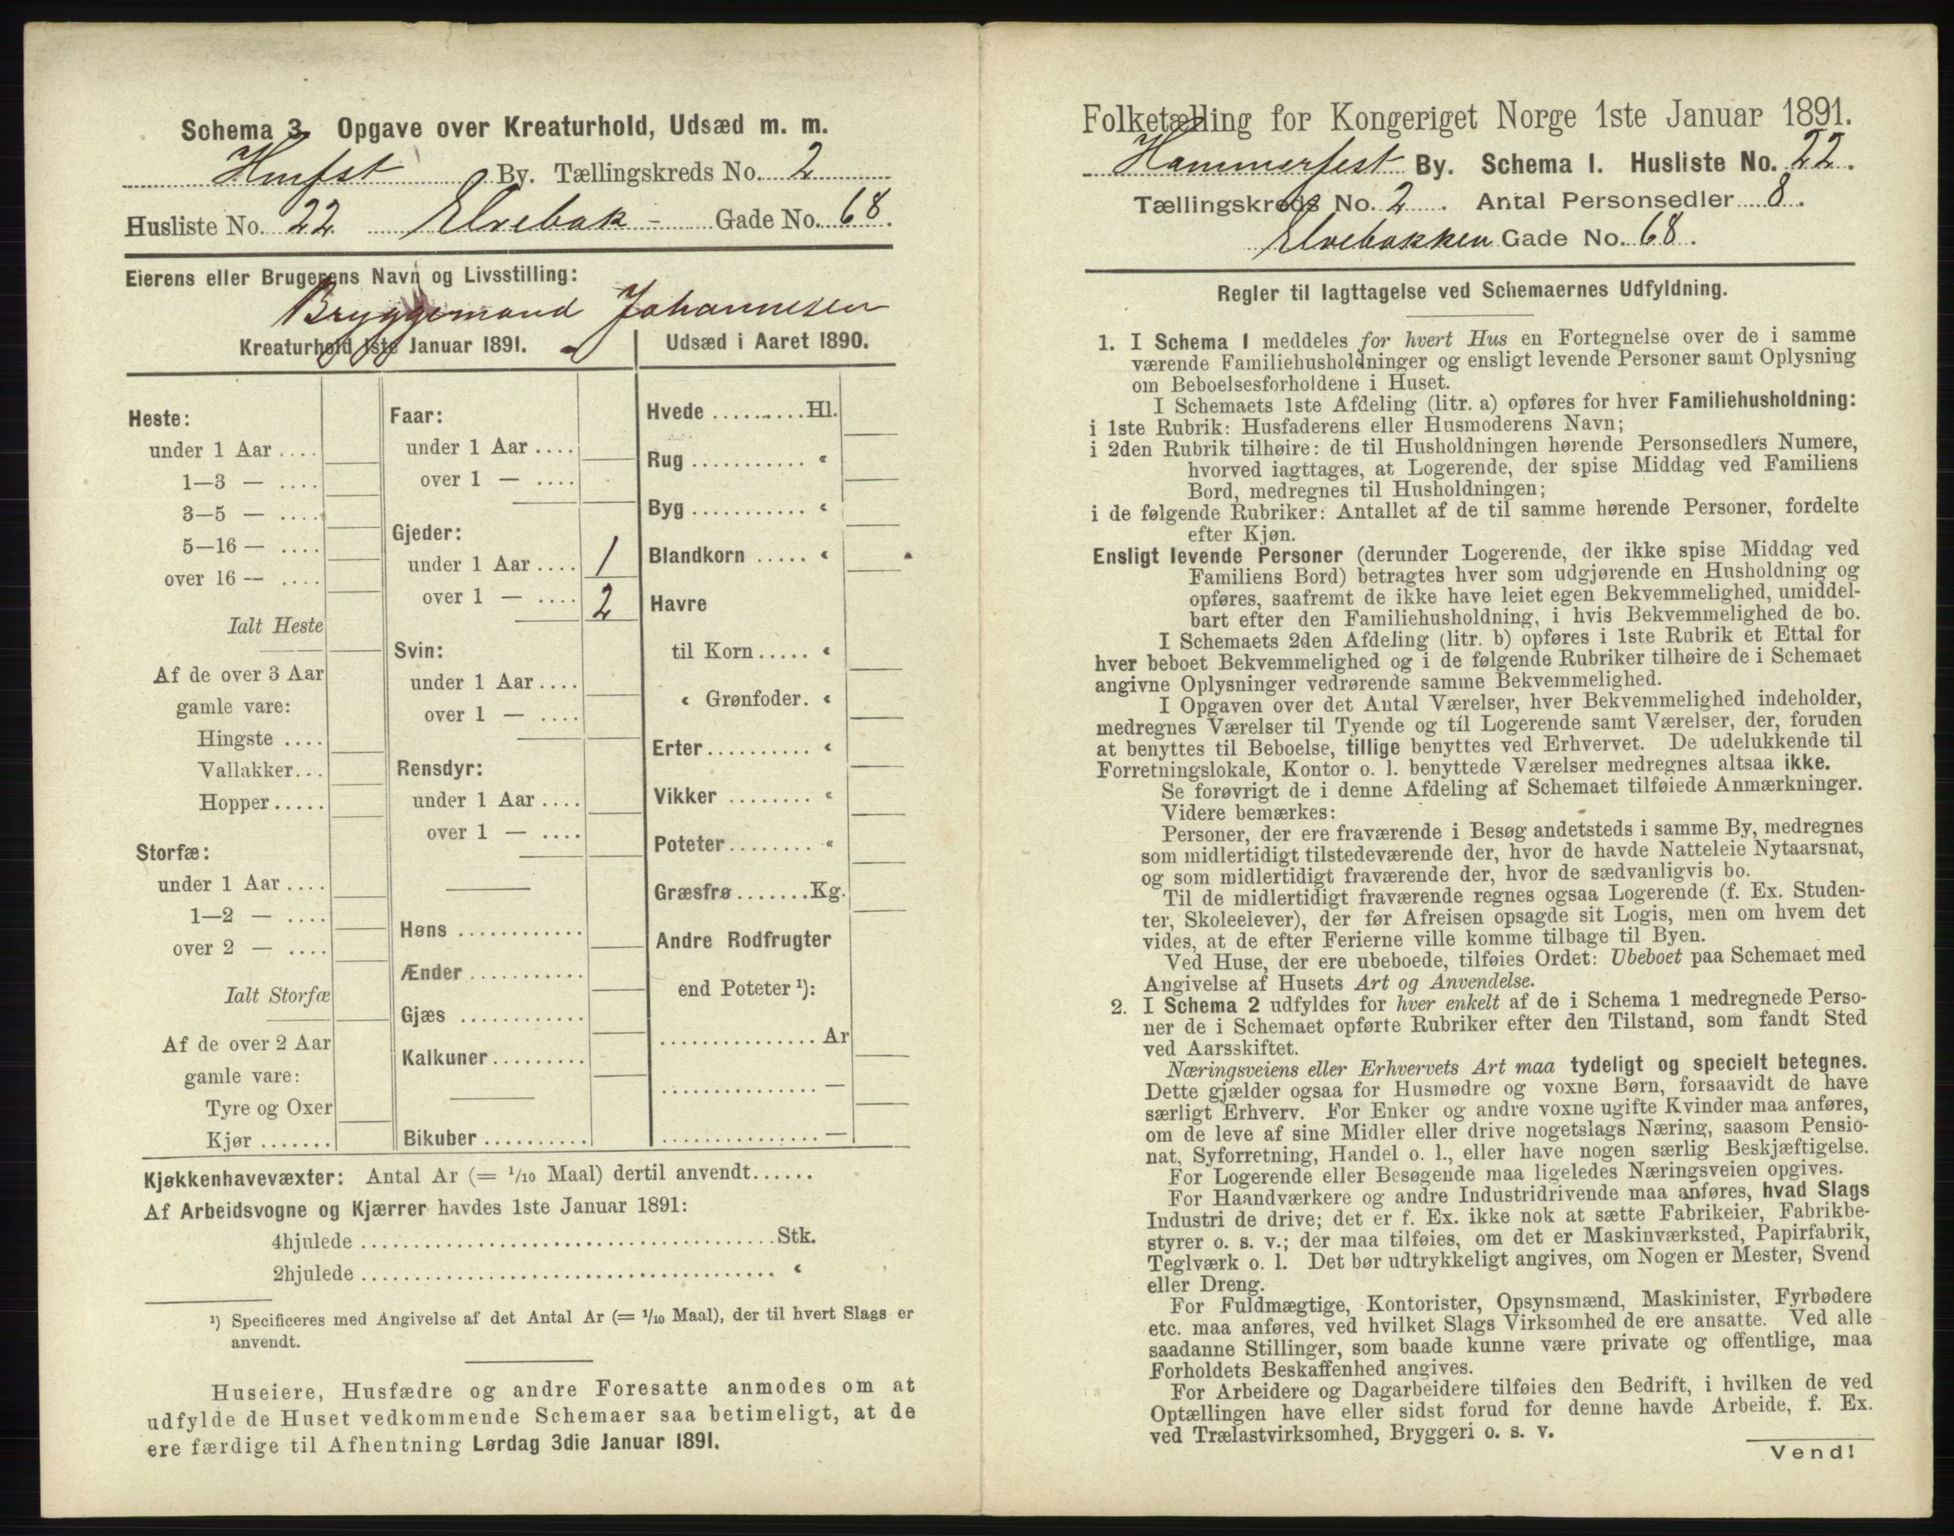 Schema 3. Opgave over Kreaturhold, Udsæd m. m.
Hmfst By. Tællingskreds No. 2
Husliste No. 22 Elvebak- Gade No. 68.
Eierens eller Brugerens Navn og Livsstilling:
Bryggemand Johannesen
Kreaturhold 1ste Januar 1891.
Heste:
under 1 Aar ....
1—3 — ....
3—5 — ....
5—16 — ....
over 16 — ....
Ialt Heste
Af de over 3 Aar
gamle vare:
Hingste ....
Vallakker...
Hopper.....
Storfæ:
under 1 Aar ....
1—2 — ....
over 2 — ....
Ialt Storfæ
Af de over 2 Aar
gamle vare:
Tyre og Oxer
Kjør .......
Faar:
under 1 Aar ....
over 1 — ....
Gjeder:
under 1 Aar .... 1
over 1 — .... 2
Svin:
under 1 Aar....
over 1 — ....
Rensdyr:
under 1 Aar ....
over 1 — ....
Høns ............
Ænder ...........
Gjæs ............
Kalkuner.........
Bikuber ..........
Udsæd i Aaret 1890.
Hvede .........Hl.
Rug ........... «
Byg ........... «
Blandkorn ..... «
Havre
til Korn..... «
« Grønfoder. «
Erter.......... «
Vikker ........ «
Poteter........ «
Græsfrø .......Kg.
Andre Rodfrugter
end Poteter ¹):
............... Ar
............... —
............... —
Kjøkkenhavevæxter: Antal Ar (= 1/10 Maal) dertil anvendt......
Af Arbeidsvogne og Kjærrer havdes 1ste Januar 1891:
4hjulede ........................................Stk.
2hjulede ........................................ «
¹) Specificeres med Angivelse af det Antal Ar (= 1/10 Maal), der til hvert Slags er
anvendt.
Huseiere, Husfædre og andre Foresatte anmodes om at
udfylde de Huset vedkommende Schemaer saa betimeligt, at de
ere færdige til Afhentning Lørdag 3die Januar 1891.
Folketælling for Kongeriget Norge 1ste Januar 1891.
Hammerfest By. Schema I. Husliste No. 22.
Tællingskreds No. 2. Antal Personsedler 8.
Elvebakken Gade No. 68.
Regler til Iagttagelse ved Schemaernes Udfyldning.
1. I Schema 1 meddeles for hvert Hus en Fortegnelse over de i samme
værende Familiehusholdninger og ensligt levende Personer samt Oplysning
om Beboelsesforholdene i Huset.
I Schemaets 1ste Afdeling (litr. a) opføres for hver Familiehusholdning:
i 1ste Rubrik: Husfaderens eller Husmoderens Navn;
i 2den Rubrik tilhøire: de til Husholdningen hørende Personsedlers Numere,
hvorved iagttages, at Logerende, der spise Middag ved Familiens
Bord, medregnes til Husholdningen;
i de følgende Rubriker: Antallet af de til samme hørende Personer, fordelte
efter Kjøn.
Ensligt levende Personer (derunder Logerende, der ikke spise Middag ved
Familiens Bord) betragtes hver som udgjørende en Husholdning og
opføres, saafremt de ikke have leiet egen Bekvemmelighed, umiddel-
bart efter den Familiehusholdning, i hvis Bekvemmelighed de bo.
I Schemaets 2den Afdeling (litr. b) opføres i 1ste Rubrik et Ettal for
hver beboet Bekvemmelighed og i de følgende Rubriker tilhøire de i Schemaet
angivne Oplysninger vedrørende samme Bekvemmelighed.
I Opgaven over det Antal Værelser, hver Bekvemmelighed indeholder,
medregnes Værelser til Tyende og til Logerende samt Værelser, der, foruden
at benyttes til Beboelse, tillige benyttes ved Erhvervet. De udelukkende til
Forretningslokale, Kontor o. l. benyttede Værelser medregnes altsaa ikke.
Se forøvrigt de i denne Afdeling af Schemaet tilføiede Anmærkninger.
Videre bemærkes:
Personer, der ere fraværende i Besøg andetsteds i samme By, medregnes
som midlertidigt tilstedeværende der, hvor de havde Natteleie Nytaarsnat,
og som midlertidigt fraværende der, hvor de sædvanligvis bo.
Til de midlertidigt fraværende regnes ogsaa Logerende (f. Ex. Studen-
ter, Skoleelever), der før Afreisen opsagde sit Logis, men om hvem det
vides, at de efter Ferierne ville komme tilbage til Byen.
Ved Huse, der ere ubeboede, tilføies Ordet: Ubeboet paa Schemaet med
Angivelse af Husets Art og Anvendelse.
2. I Schema 2 udfyldes for hver enkelt af de i Schema 1 medregnede Perso-
ner de i Schemaet opførte Rubriker efter den Tilstand, som fandt Sted
ved Aarsskiftet.
Næringsveiens eller Erhvervets Art maa tydeligt og specielt betegnes.
Dette gjælder ogsaa for Husmødre og voxne Børn, forsaavidt de have
særligt Erhverv. For Enker og andre voxne ugifte Kvinder maa anføres,
om de leve af sine Midler eller drive nogetslags Næring, saasom Pensio-
nat, Syforretning, Handel o. l., eller have nogen særlig Beskjæftigelse.
For Logerende eller Besøgende maa ligeledes Næringsveien opgives.
For Haandværkere og andre Industridrivende maa anføres, hvad Slags
Industri de drive; det er f. Ex. ikke nok at sætte Fabrikeier, Fabrikbe-
styrer o. s. v.; der maa tilføies, om det er Maskinværksted, Papirfabrik,
Teglværk o. l. Det bør udtrykkeligt angives, om Nogen er Mester, Svend
eller Dreng.
For Fuldmægtige, Kontorister, Opsynsmænd, Maskinister, Fyrbødere
etc. maa anføres, ved hvilket Slags Virksomhed de ere ansatte. Ved alle
saadanne Stillinger, som baade kunne være private og offentlige, maa
Forholdets Beskaffenhed angives.
For Arbeidere og Dagarbeidere tilføies den Bedrift, i hvilken de ved
Optællingen have eller sidst forud for denne havde Arbeide, f. Ex.
ved Trælastvirksomhed, Bryggeri o. s. v.
Vend!